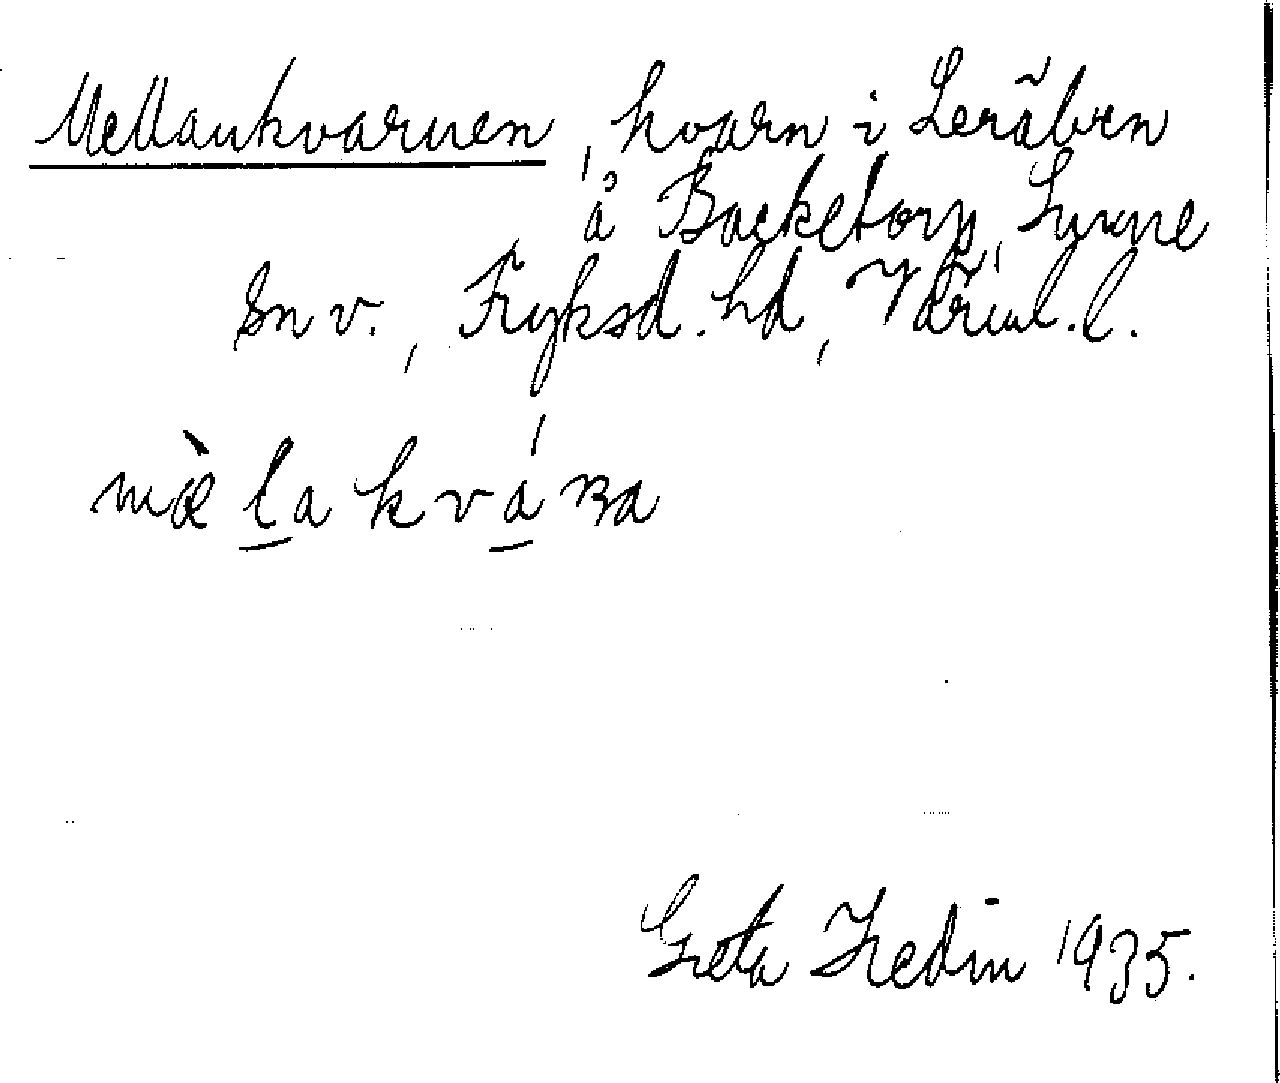 Mellankvarnen, kvarn i Lerälven
å Backetorp, Sunne
sn v., Fryksd. hd, Värml. l.
mæ̀lakvána
Greta Hedin 1935.